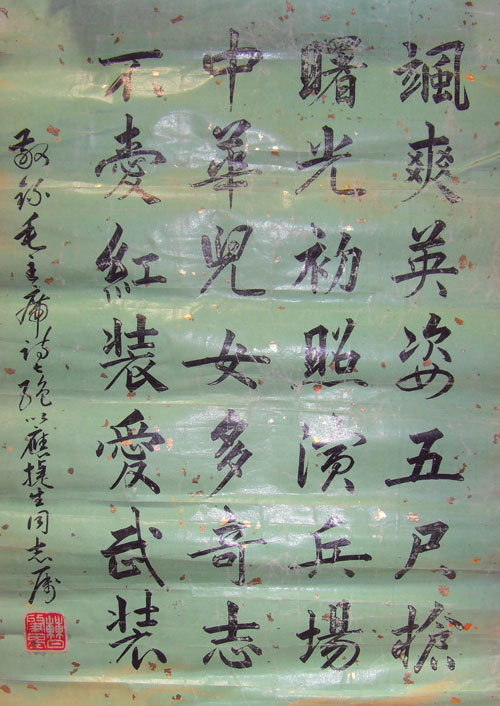 颯爽英姿五尺槍
曙光初照演兵場
中華兒女多奇志
不愛紅裝愛武裝
敬錄毛主席詩七絕以應生同志属